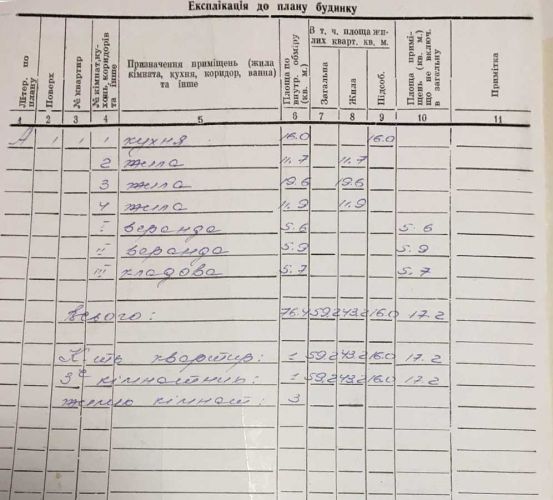 Експлікація до плану будинку
Літер. по плану | Поверх | № квартир | № кімнат, кухонь, коридорів та інше | Призначення приміщень (жила кімната, кухня, коридор, ванна) та інше | Площа по внутр. обміру (кв. м.) | В т. ч. площа жилих кварт. кв. м. | Площа приміщень (кв. м.) що не включ. в загальну | Примітка
Загальна | Жила | Підсоб.
1 | 2 | 3 | 4 | 5 | 6 | 7 | 8 | 9 | 10 | 11
А | 1 | 1 | 1 | кухня | 16.0 | 16.0
2 | жила | 11.7 | 11.7
3 | жила | 19.6 | 19.6
4 | жила | 11.9 | 11.9
I | веранда | 5.6 | 5.6
II | веранда | 5.9 | 5.9
III | кладова | 5.7 | 5.7
Всього: | 76.4 | 59.2 | 43.2 | 16.0 | 17.2
К-сть квартир: | 1 | 59.2 | 43.2 | 16.0 | 17.2
3х кімнатних: | 1 | 59.2 | 43.2 | 16.0 | 17.2
жилих кімнат: | 3